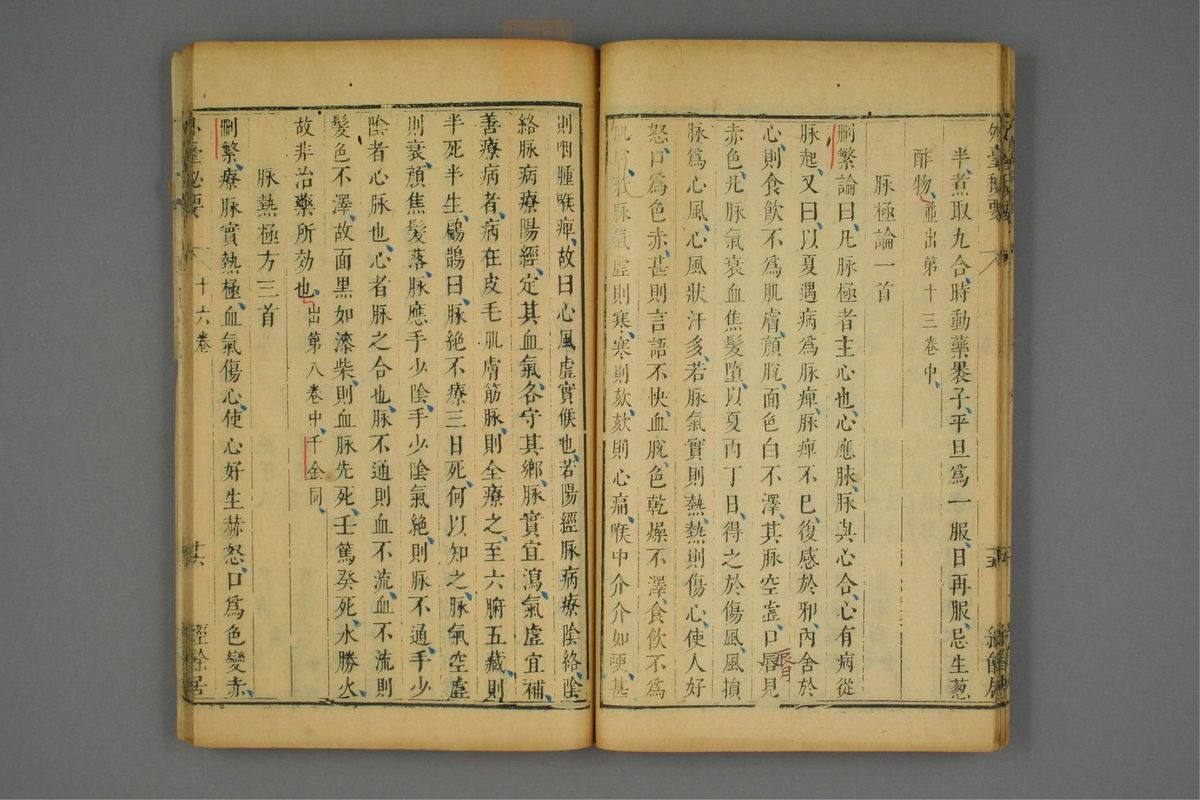 半煮取九合時動藥褁子平旦爲一服日再服忌生葱
酢物並出第十三卷中
脉極論一首
刪繁論曰凡脉極者主心也心應脉脉與心合心有病從
脉起又曰以夏遇病爲脉痺脉痺不已復感於邪內舍於
心則食飲不爲肌膚顏脫面色白不澤其脉空虛口唇見
赤色凡脉氣衰血焦髮墮以夏丙丁日得之於傷風風損
脉爲心風心風狀汗多若脉氣實則熱熱則傷心使人好
怒口爲色赤甚則言語不快血脫色乾燥不澤食飲不爲
肌膚若脉氣虛則寒寒則欬欬則心痛喉中介介如哽甚
則咽腫喉痺故曰心風虛實候也若陽經脉病療陰絡陰
絡脉病療陽經定其血氣各守其鄉脉實宜瀉氣虛宜補
善療病者病在皮毛肌膚筋脉則全療之至六腑五藏則
半死半生鷃鵲曰脉絕不療三日死何以知之脉氣空虛
則衰顏焦髮落脉應手少陰手少陰氣絕則脉不通手少
陰者心脉也心者脉之合也脉不通則血不流血不流則
髮色不澤故面黑如漆柴則血脉先死壬篤癸死水勝火
故非治藥所効也出第八卷中千金同
脉熱極方三首
刪繁療脉實熱極血氣傷心使心好生赫怒口爲色變赤
外臺祕要
十六卷
廿六
經餘居